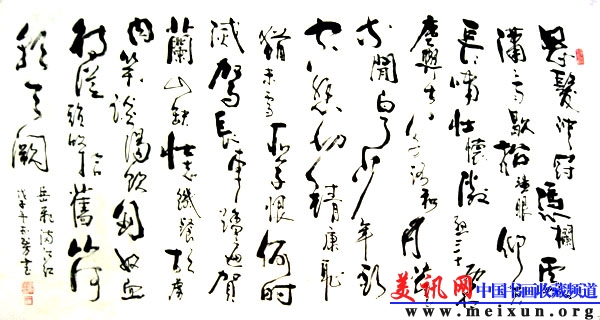 怒髮沖冠憑欄處
瀟瀟雨歇抬望眼仰天
長嘯壯懷激烈三十功名
塵與土八千里路和月莫
等閒白了少年頭
空悲切靖康恥
猶未雪臣子恨何時
滅駕長車踏破賀
蘭山缺壯志饑餐胡虜
肉笑談渴飲匈奴血
待從頭收拾舊山河
朝天闕
岳飛滿江紅
美讯网 中国书画收藏频道
www.meixun.org